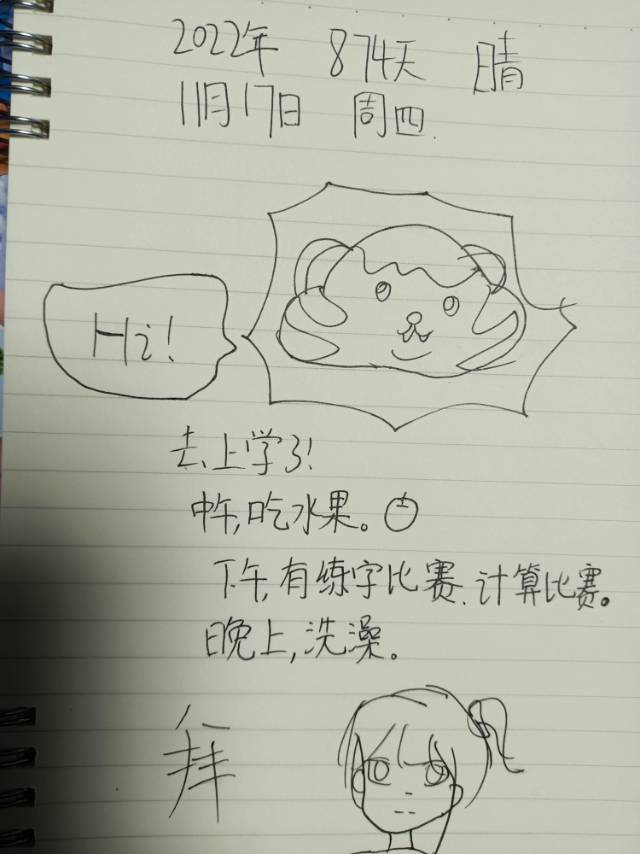 2022年 874天 晴
11月17日 周四.
Hi!
去上学了!
中午,吃水果。
下午,有练字比赛、计算比赛。
晚上,洗澡。